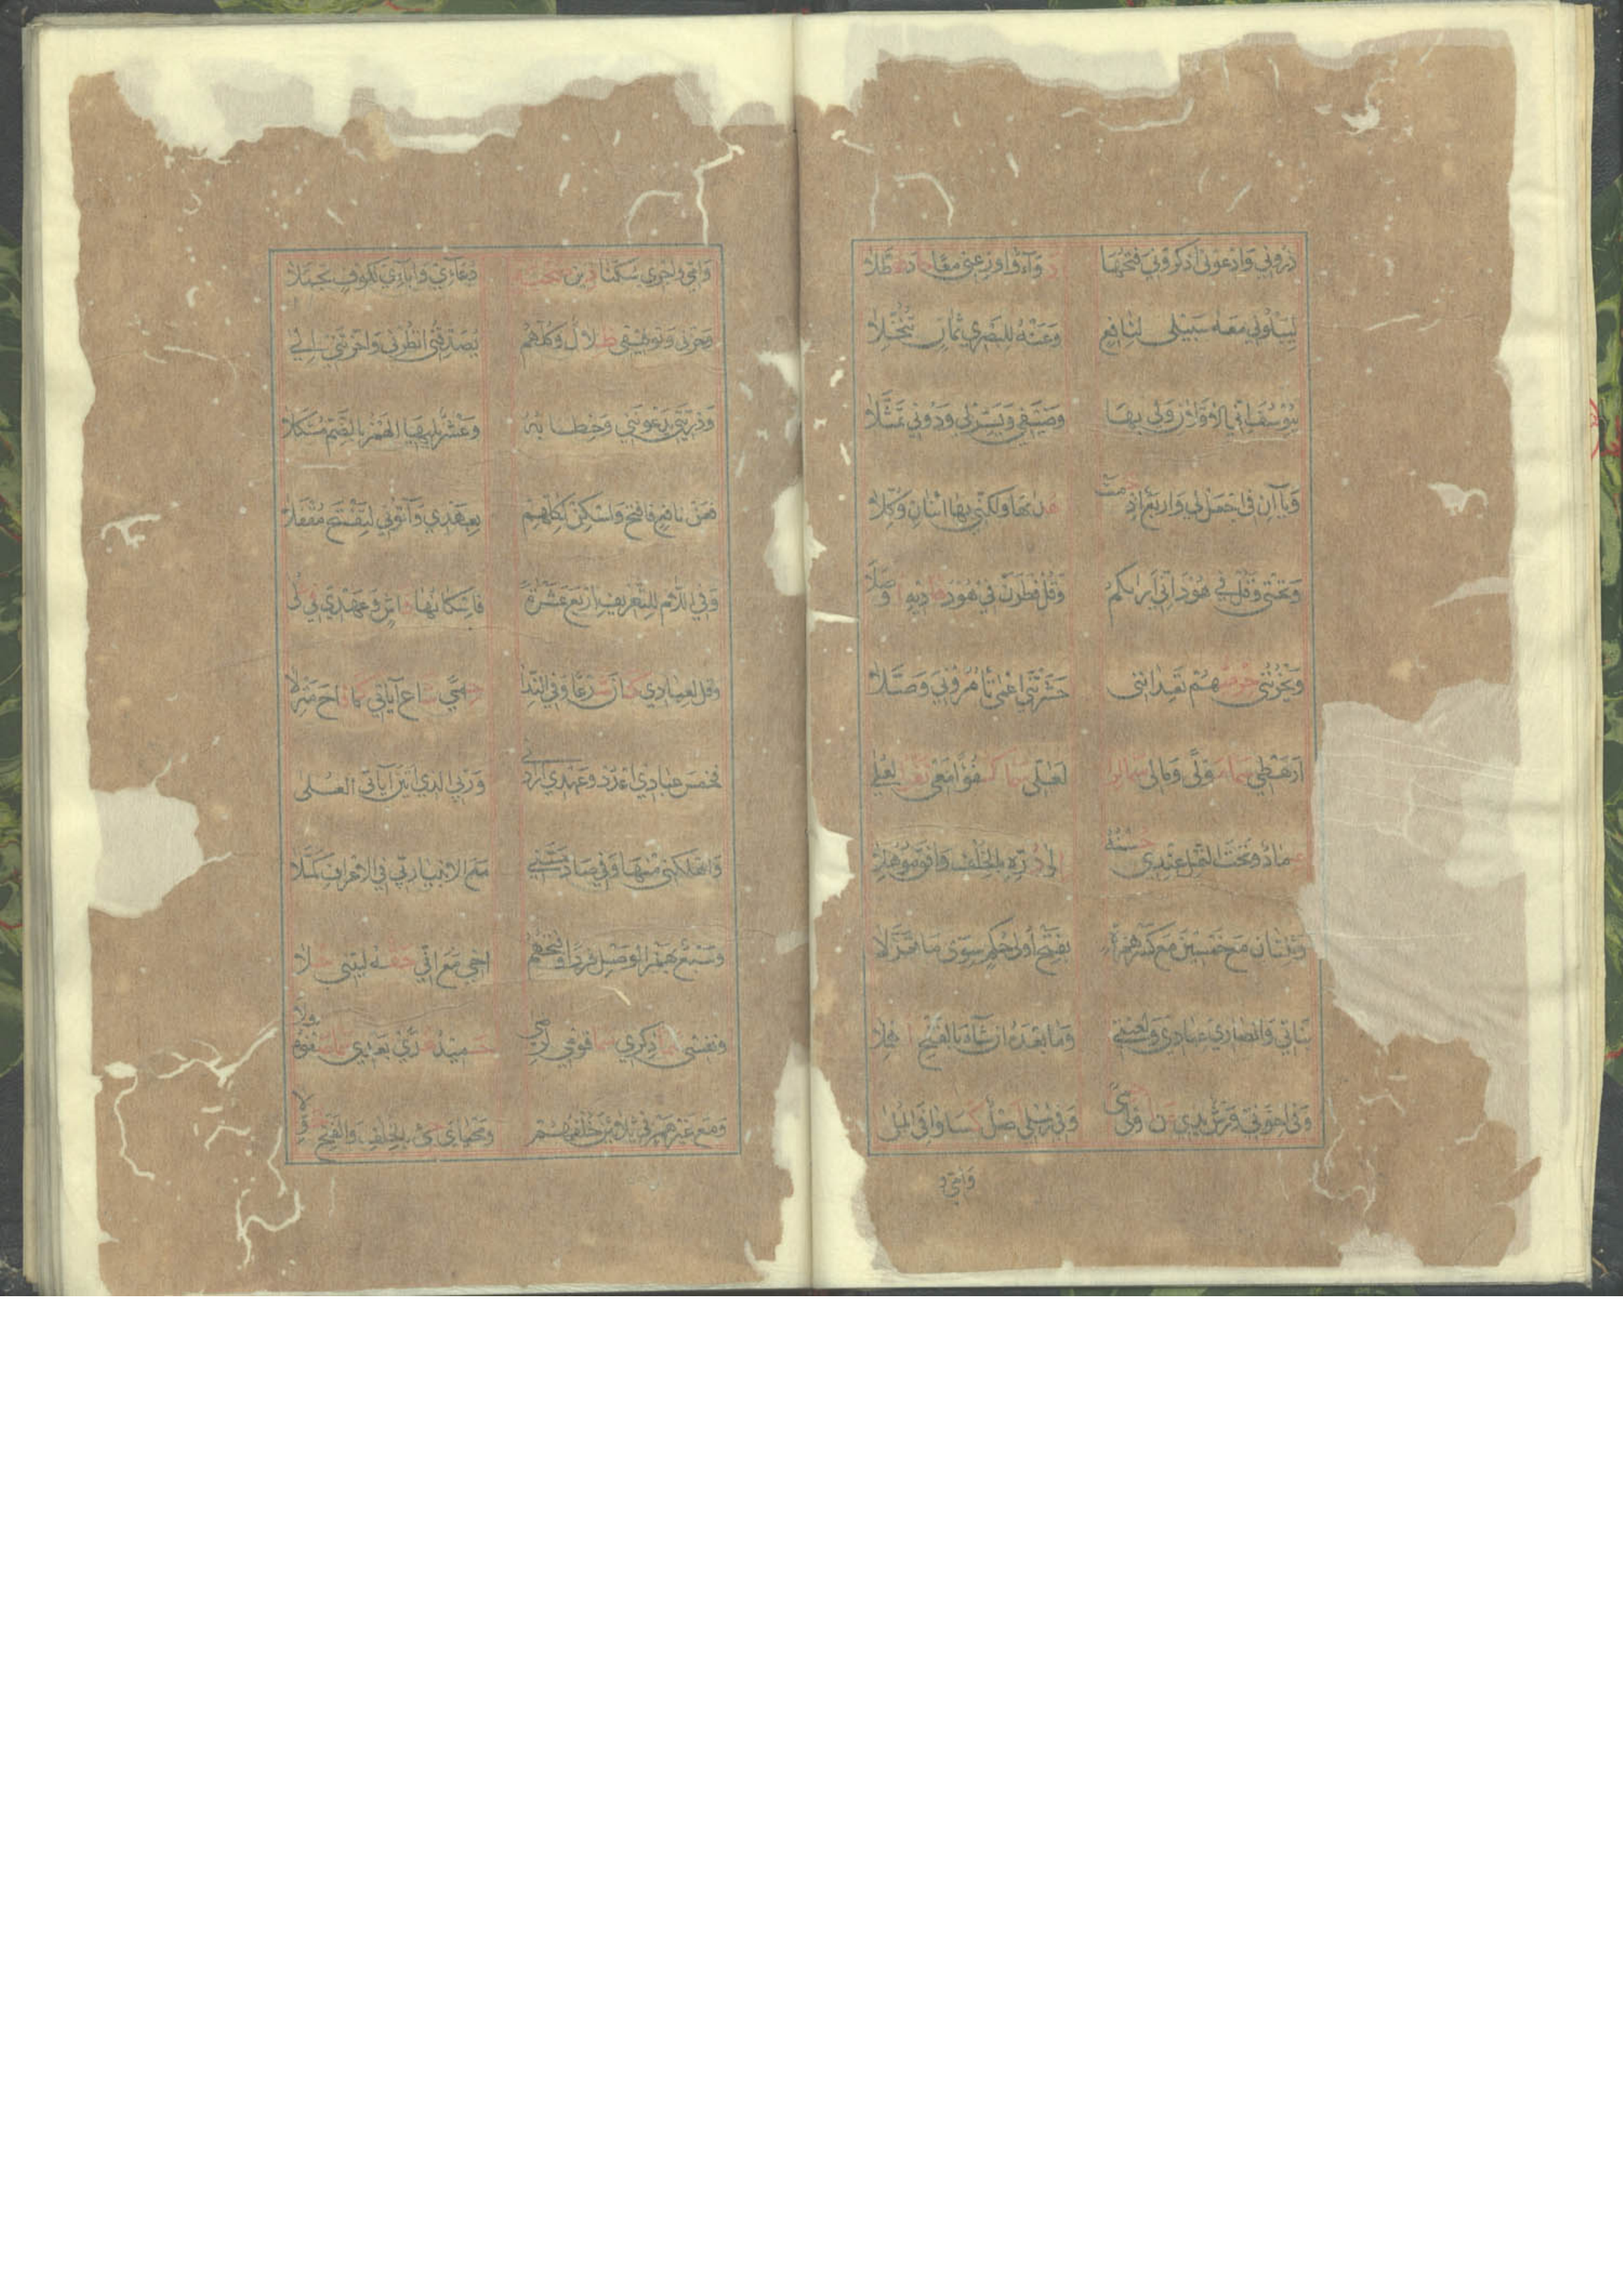 ذَرُونِي وَادْعُونِي اذْكُرُونِي فَتْحُهَا دَوَآءٌ وَاَوْزِعْنِي مَعًا جَادَ هُطَّلَا
لِيَبْلُوَنِي مَعْهُ سَبِيلِي لِنَافِعٍ وَعَنْهُ لِلْبَصْرِي ثَمَانٍ تُنُخِّلَا
بِيُوسُفَ اِنِّي الْاَوَّلَانِ وَلِي بِهَا وَضَيْفِي وَيَسِّرْ لِي وَدُونِي تَمَثَّلَا
وَيَاآنِ فِي اجْعَلْ لِي وَاَرْبَعٌ اِذْ حَمَتْ هُدَاهَا وَلَكِنِّي بِهَا اثْنَانِ وُكِّلَا
وَتَحْتِي وَقُلْ فِي هُودَ اِنِّي اَرَاكُمُ وَقُلْ فَطَرَنْ فِي هُودَ هَادِيهِ اَوْصَلَا
وَيَحْزُنُنِي حِرْمِيُّهُمْ تَعِدَانِنِي حَشَرْتَنِي اَعْمَى تَأْمُرُونِي وَصَّلَا
اَرَهْطِي سَمَا مَوْلًى وَمَالِي سَمَا لِوًا لَعَلِّي سَمَا كُفْؤًا مَعِي نَفْرُ الْعُلَى
عِمَادٌ وَتَحْتَ النَّمْلِ عِنْدِي حُسْنُهُ اِلَى دُرِّهِ بِالْخُلْفِ وَافَقَ مُوهَلَا
وَثِنْتَانِ مَعْ خَمْسِينَ مَعْ كَسْرِ هَمْزَةٍ بِفَتْحِ اُولِي حُكْمٍ سِوَى مَا تَعَزَّلَا
بَنَاتِي وَاَنْصَارِي عِبَادِي وَلَعْنَتِي وَمَا بَعْدَهُ اِنْ شَآءَ بِالْفَتْحِ اُهْمِلَا
وَفِي اِخْوَتِي وَرْشٌ يَدِي عَنْ اُولِي حِمًى وَفِي رُسُلِي اَصْلٌ كَسَا وَافِيَ الْمُلَا
وَاُمِّي
وَاُمِّي وَاَجْرِي سُكِّنَا دِينُ صُحْبَةٍ دُعَاءِي وَاٰبَاءِي لِكُوفٍ تَجَمَّلَا
وَحُزْنِي وَتَوْفِيقِي ظِلَالٌ وَكُلُّهُمْ يُصَدِّقْنِي اَنْظِرْنِي وَاَخَّرْتَنِي اِلَى
وَذُرِّيَّتِي يَدْعُونَنِي وَخِطَابُهُ وَعَشْرٌ يَلِيهَا الْهَمْزُ بِالضَّمِّ مُشْكَلَا
فَعَنْ نَافِعٍ فَافْتَحْ وَاَسْكِنْ لِكُلِّهِمْ بِعَهْدِي وَآتُونِي لِتَفْتَحَ مُقْفَلَا
وَفِي اللَّامِ لِلتَّعْرِيفِ اَرْبَعُ عَشْرَةٍ فَاِسْكَانُهَا فَاشٍ وَعَهْدِي فِي عُلَى
وَقُلْ لِعِبَادِي كَانَ شَرْعًا وَفِي النِّدَا حِمًى شَاعَ آيَاتِي كَمَا فَاحَ مَنْزِلَا
فَخَمْسَ عِبَادِي اعْدُدْ وَعَهْدِي اَرَادَنِي وَرَبِّي الَّذِي آتَانِ آيَاتِيَ الْعُلَى
وَاَهْلَكَنِي مِنْهَا وَفِي صَادَ مَسَّنِي مَعَ الْاَنْبِيَا رَبِّي فِي الْاَعْرَافِ كَمَّلَا
وَسَبْعٌ بِهَمْزِ الْوَصْلِ فَرْدًا وَفَتْحُهُمْ اَخِي مَعَ اِنِّي حَقُّهُ لَيْتَنِي حَلَا
وَنَفْسِي سَمَا ذِكْرِي سَمَا قَوْمِي الرِّضَى حَمِيدُ هُدًى بَعْدِي سَمَا صَفْوُهُ وِلَا
وَمَعْ غَيْرِ هَمْزٍ فِي ثَلَاثِينَ خُلْفُهُمْ وَمَحْيَايَ جِئْ بِالْخُلْفِ وَالْفَتْحُ خُوِّلَا